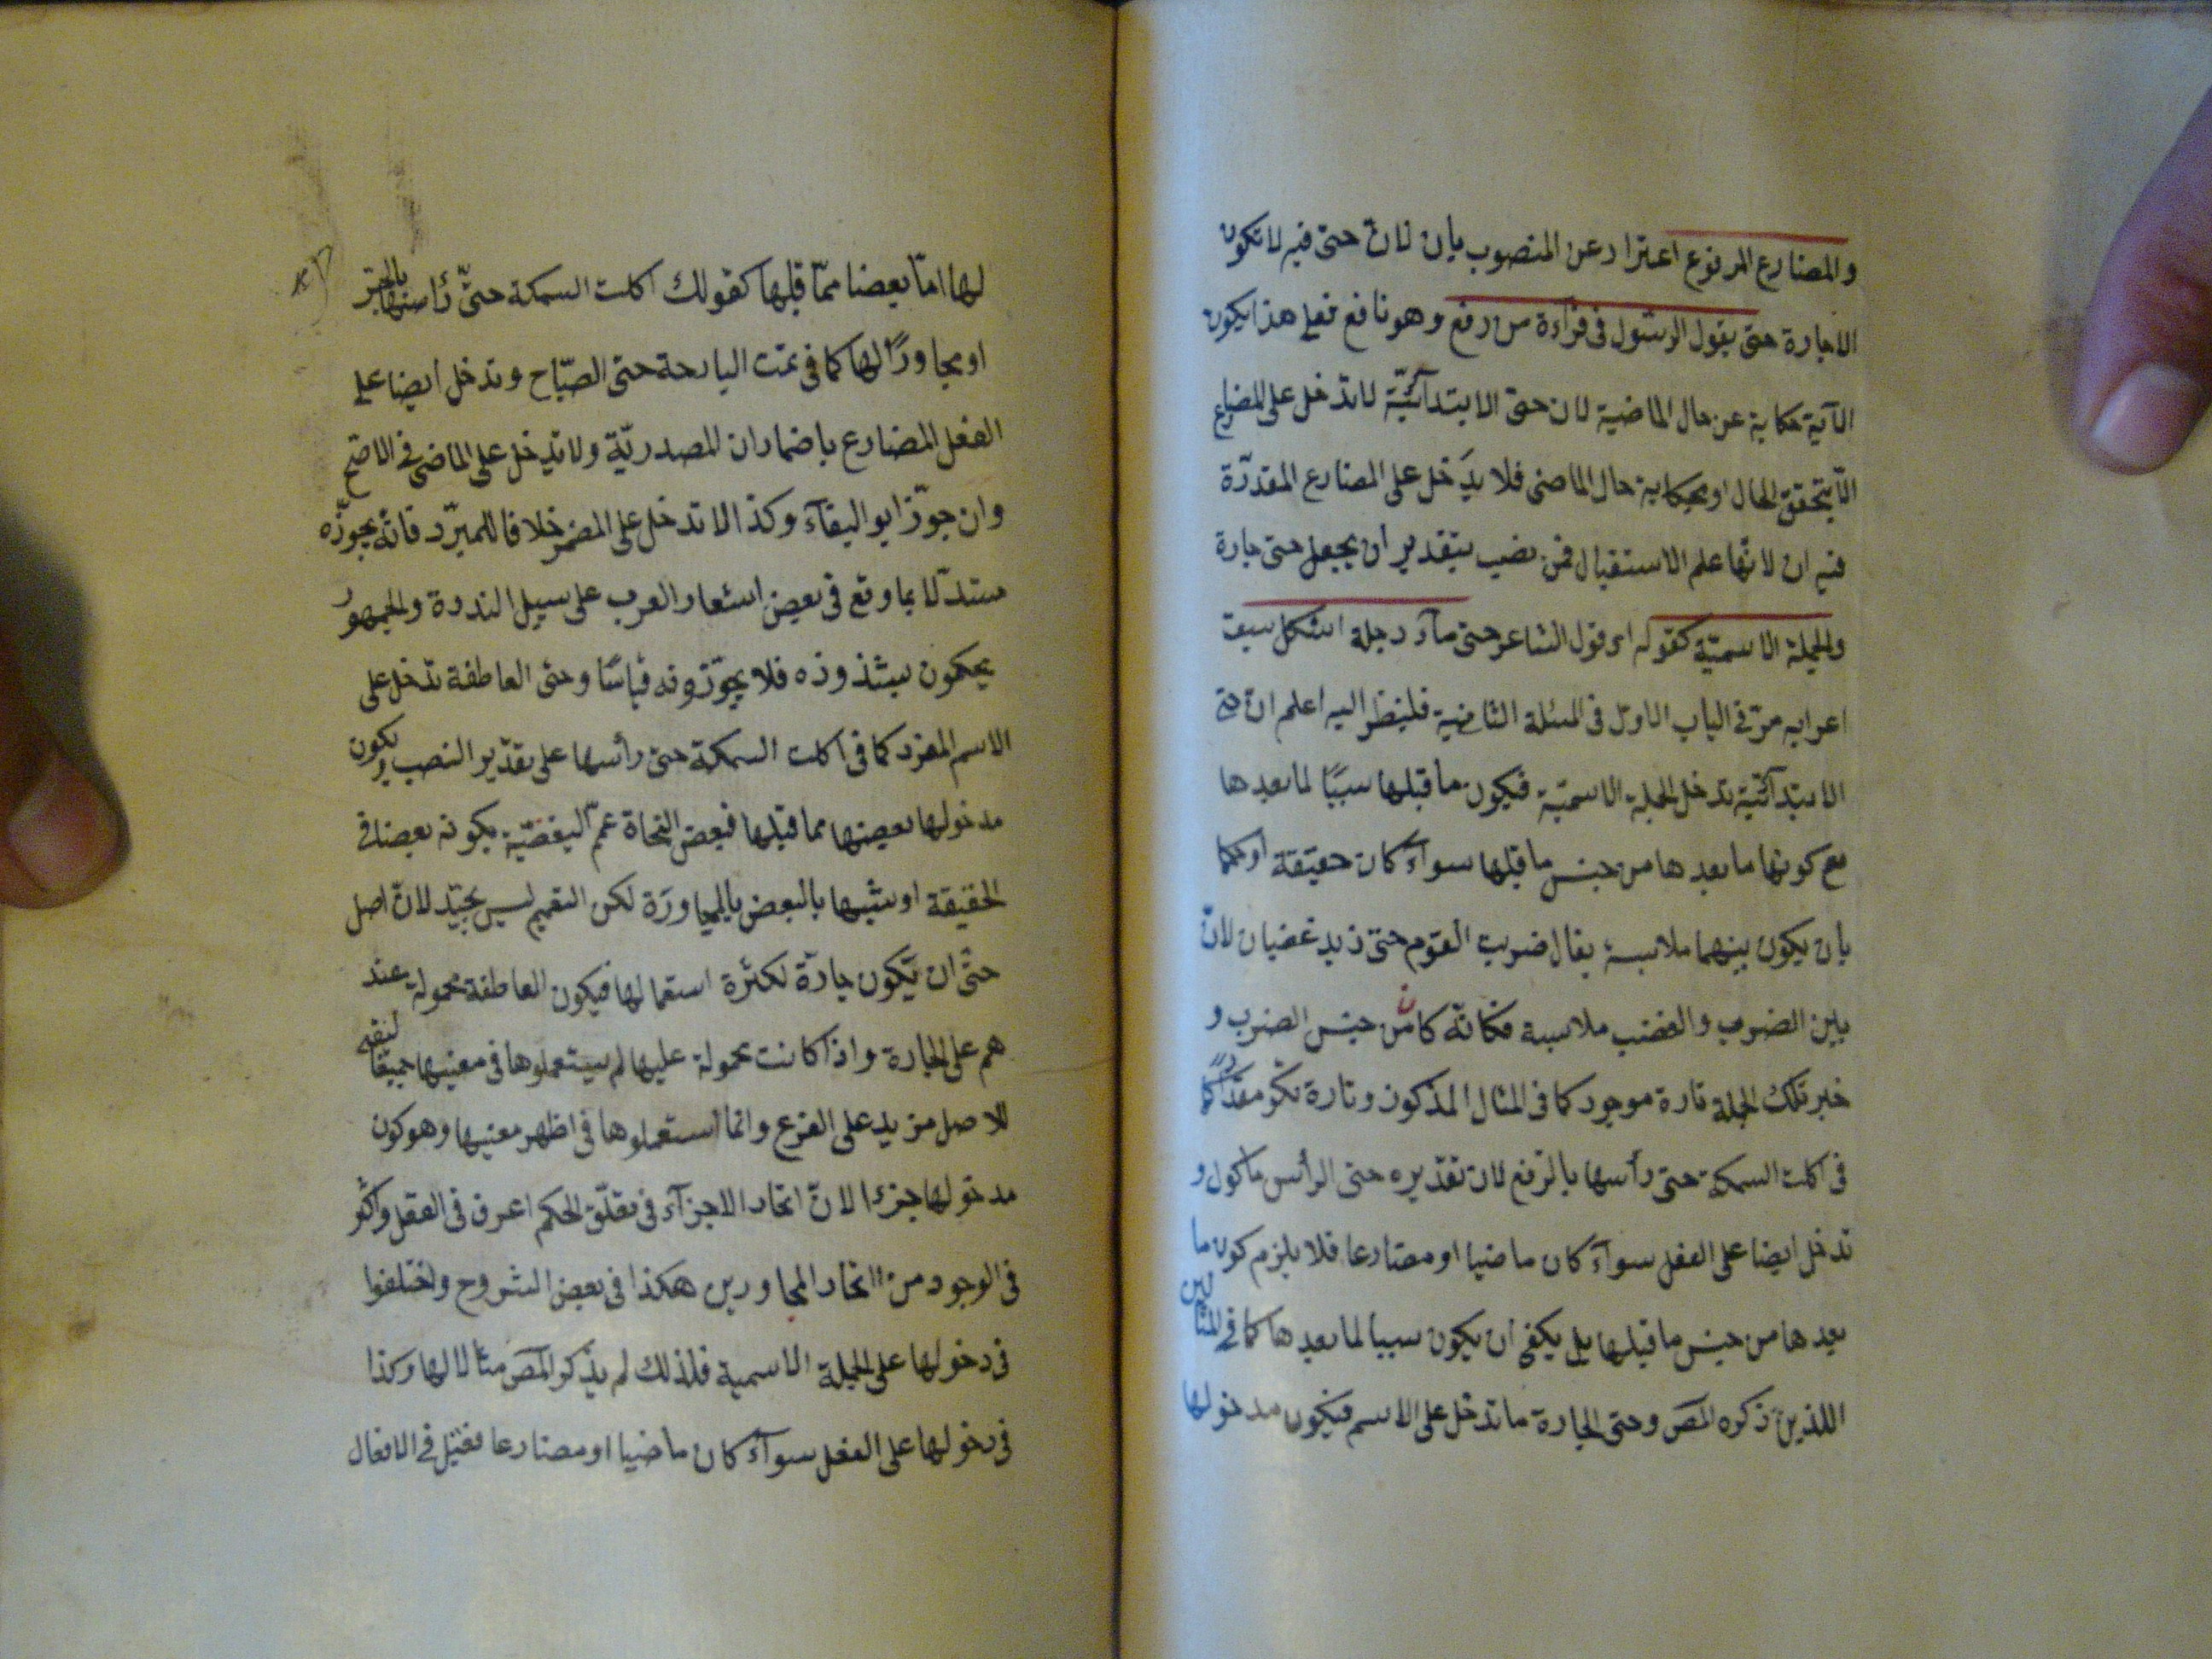 والمضارع المرفوع احترازا عن المنصوب بان لان حتى فيه لا تكون
الا جارة حتى يقول الرسول في قراءة من رفع وهو نافع فعلى هذا يكون
الآية حكاية عن حال الماضية لان حتى الابتدآئيّة لا تدخل على المضارع
الا بتحقق الحال او بحكاية حال الماضي فلا يدخل على المضارع المقدرة
فيه ان لانها علم الاستقبال فمن نصب بتقدير ان يجعل حتى جارة
والجملة الاسميّة كقوله اى قول الشاعر حتى مآء دجلة اشكل سبق
اعرابه مرّ في الباب الاول في المسئلة الثانية فلينظر اليه اعلم انّ حتى
الابتدآئيّة تدخل الجملة الاسميّة فيكون ما قبلها سببًا لما بعدها
مع كونها ما بعدها من جنس ما قبلها سوآء كان حقيقة او حكما
بان يكون بينهما ملابسة يقال ضربت القوم حتى زيد غضبان لانّ
بين الضرب والغضب ملابسة فكانّه كان من جنس الضرب و
خبر تلك الجملة تارة موجود كما في المثال المذكور وتارة تكون مقدّرا كما
في اكلت السمكة حتى رأسها بالرّفع لان تقديره حتى الرأس ماكول و
تدخل ايضا على الفعل سوآء كان ماضيا او مضارعا فلا يلزم كون ما
بعدها من جنس ما قبلها بل يكفى ان يكون سببا لما بعدها كما في المثالين
اللذين ذكره المص وحتى الجارة ما تدخل على الاسم فيكون مدخولها
لها امّا بعضا ممّا قبلها كقولك اكلت السمكة حتىّ رأسها بالجرّ
او مجاورًا لها كما في نمت البارحة حتى الصّباح وتدخل ايضا على
الفعل المضارع باضمار ان المصدريّة ولا تدخل على الماضى في الاصح
وان جوّز ابو البقآء وكذا لا تدخل على المضمر خلافا للمبرّد فانّه يجوزّه
مستدلّا بما وقع في بعض اشعار العرب على سبيل الندرة والجمهور
يحكمون بشذوذه فلا يجوّزونه قياسًا وحتى العاطفة تدخل على
الاسم المفرد كما في اكلت السمكة حتى رأسها على تقدير النصب ويكون
مدخولها بعضها مما قبلها فبعض النحاة عمّ البعضيّة بكونه بعضا في
الحقيقة او شبيها بالبعض بالمجاورة لكن التعميم ليس بجيّد لانّ اصل
حتّى ان تكون جارّة لكثرة استعمالها فيكون العاطفة محمولة عند
هم على الجارة واذا كانت محمولة عليها لم يستعملوها في معنييها جميعًا ليبقى
للاصل مزيد على الفرع وانما استعملوها في اظهر معنييها وهو كون
مدخولها جزءا لانّ اتحاد الاجزآء في تعلّق الحكم اعرف في العقل واكثر
في الوجود من اتحاد المجاورين هكذا في بعض الشروح واختلفوا
في دخولها على الجملة الاسمية فلذلك لم يذكر المص مثالا لها وكذا
في دخولها على الفعل سوآء كان ماضيا او مضارعا فقيل في الافعال